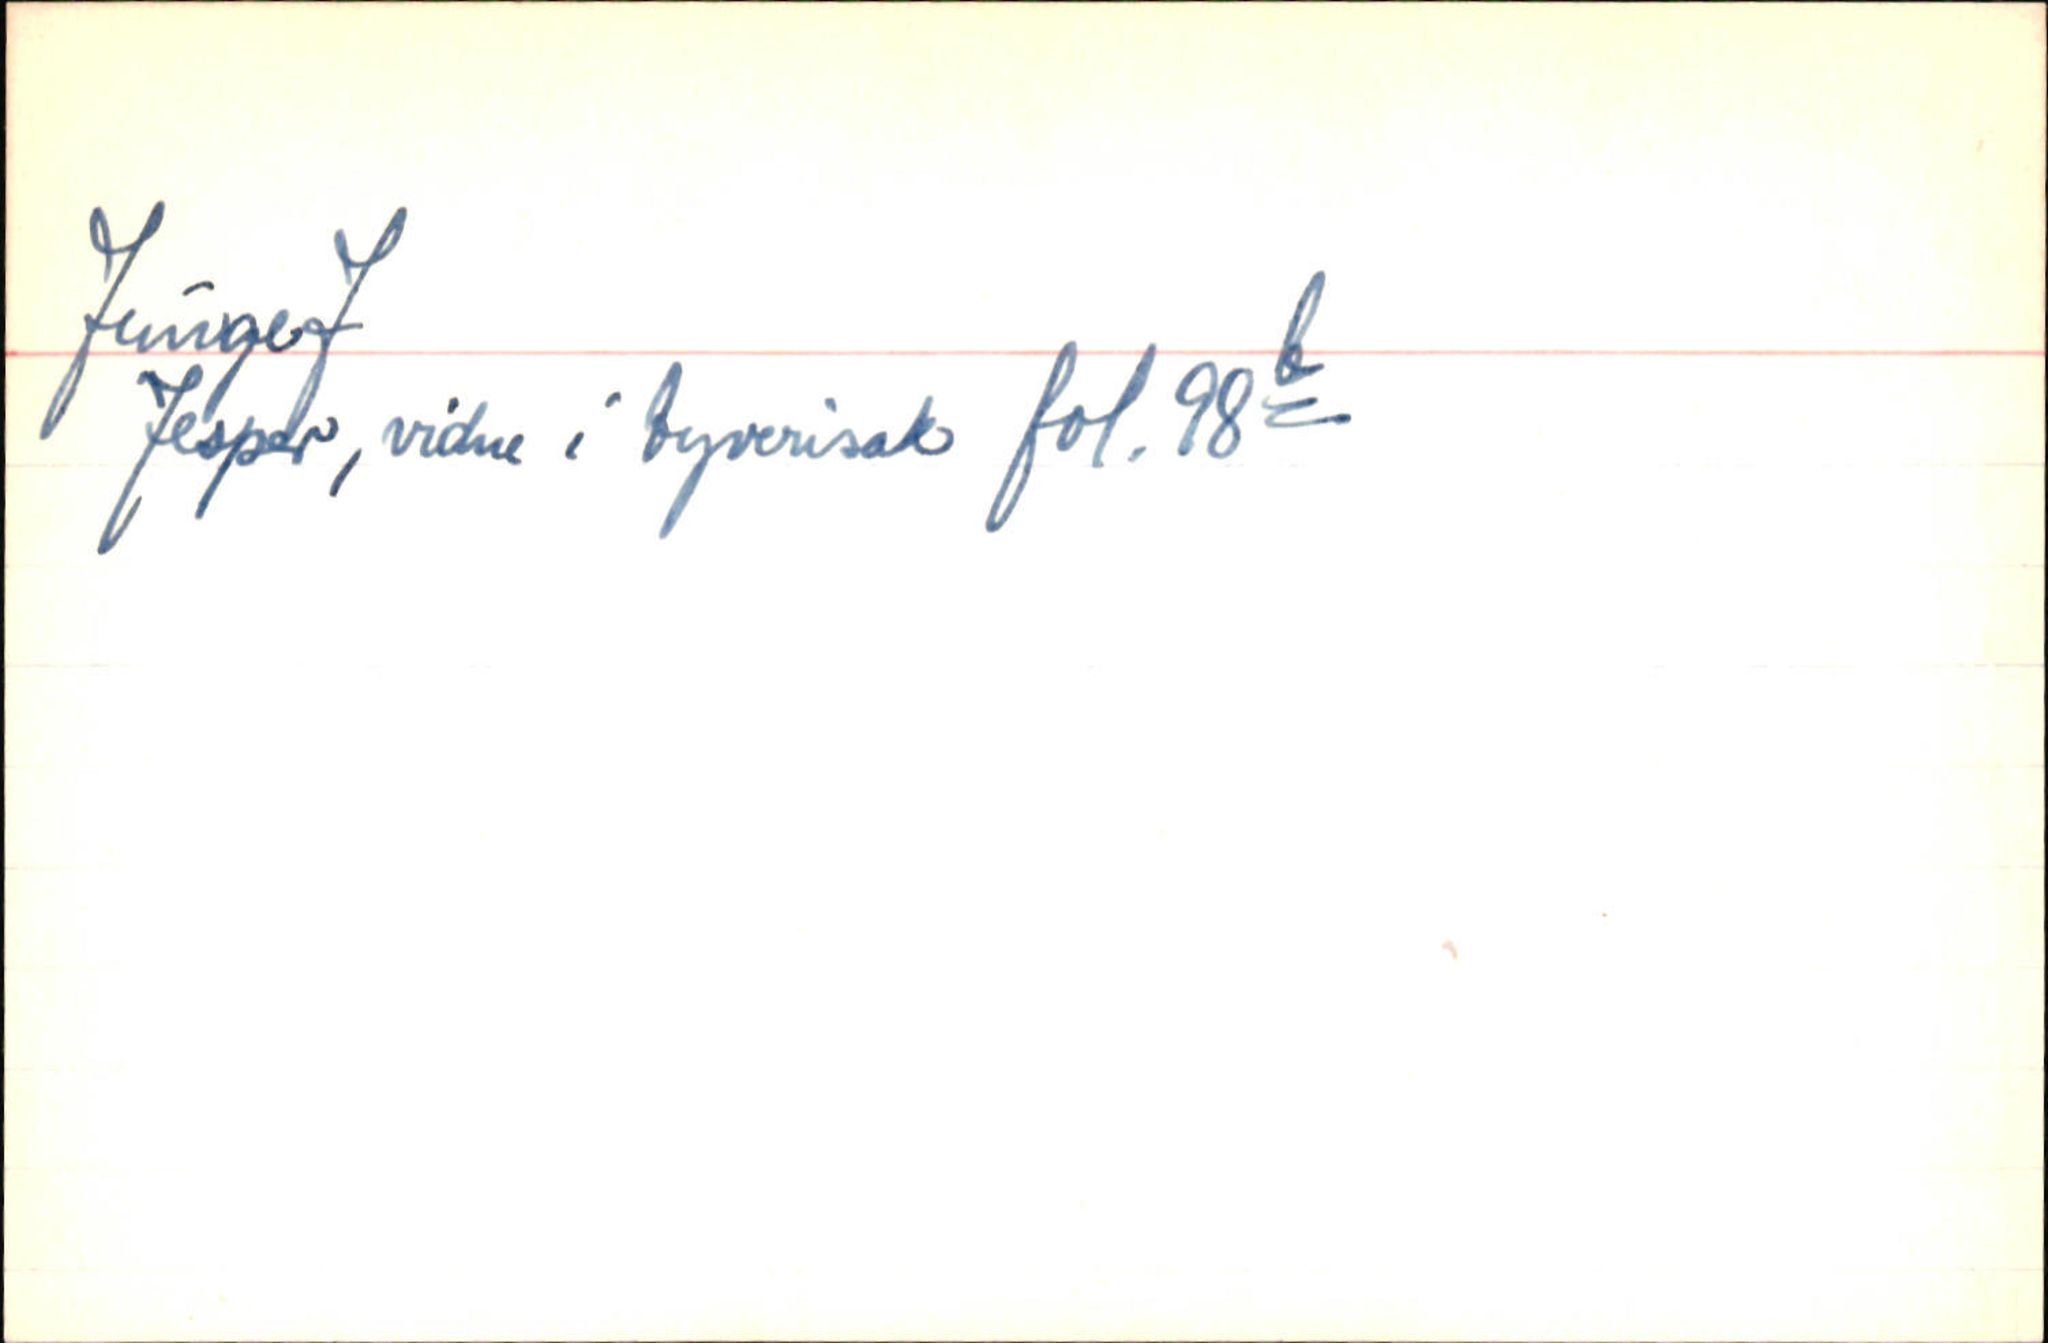 Junge J
Jesper, vidne i tyverisak fol. 98 b